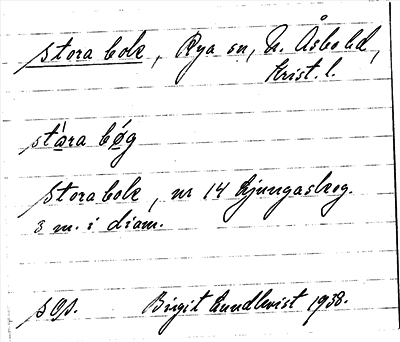 stora bok, Rya sn, N. Åsbo hd,
Krist. l.
stàra bǿg
stora bok, nr 14 Ljungaskog.
3 m. i diam.
sOp. Birgit Lundkvist 1938.